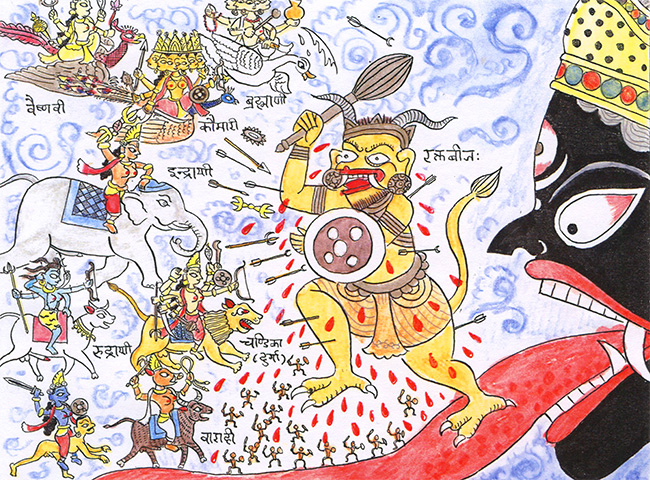 वैष्णवी
कौमारी
ब्रह्माणी
रक्तबीजः
इन्द्राणी
रुद्राणी
चण्डिका
(दुर्गा)
वाराही